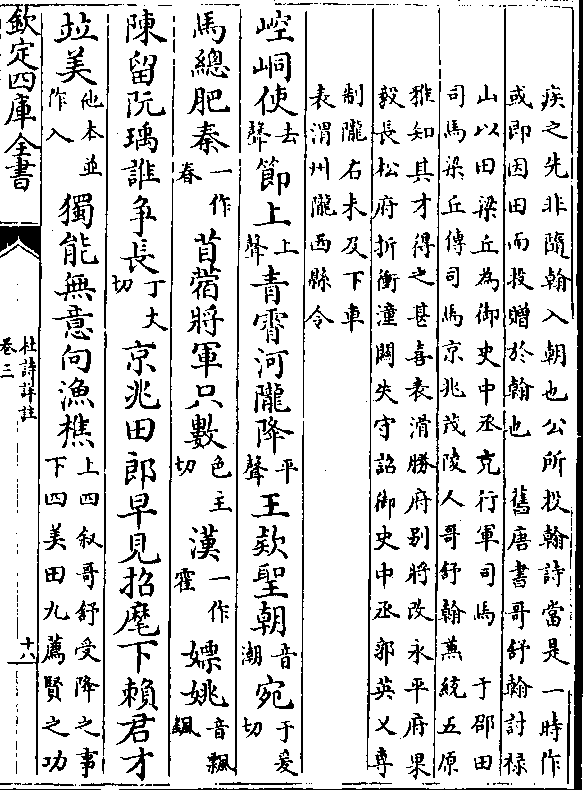 疾之先非隨翰入朝也公所投翰詩當是一時作
或即因田而投贈於翰也　舊唐書哥舒翰討祿
山以田梁丘為御史中丞充行軍司馬　于邵田
司馬梁丘傳司馬京兆茂陵人哥舒翰兼統五原
雅知其才得之甚喜表清勝府别將改永平府果
毅長松府折衝潼關失守詔御史中丞郭英乂專
制隴右未及下車
表渭州隴西縣令
崆峒使去聲節上上聲青霄河隴降平聲王欵聖朝音潮宛于爰切
馬總肥秦一作春苜蓿將軍只數色主切漢一作霍嫖姚音飄飖
陳留阮瑀誰爭長丁丈切京兆田郎早見招麾下賴君才
竝美他本並作入獨能無意向漁樵上四叙哥舒受降之事下四美田九薦賢之功
欽定四庫全書
杜詩詳註
卷三
十八